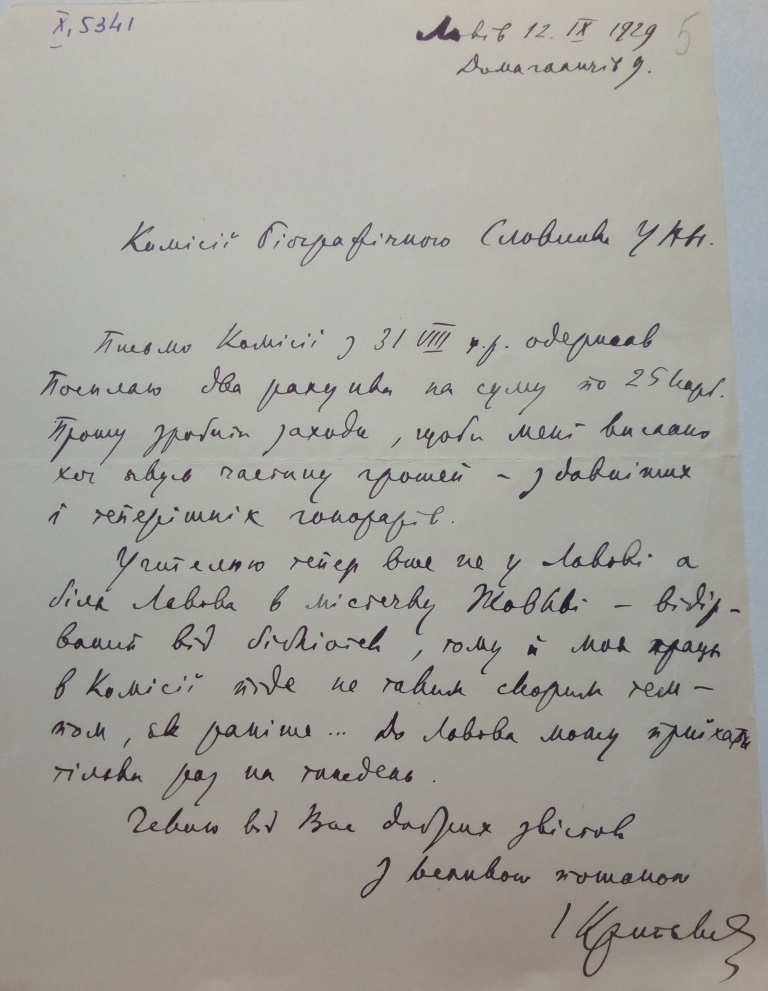 X, 5341
Львів 12. IX 1929
5
Домагаличів 9.
Комісії Біографічного Словника УАН.
Письмо Комісії з 31 VIII ц.р. одержав
Посилаю два рахунки на суму по 25 карб.
Прошу зробити заходи, щоби мені вислано
хоч якусь частину грошей – з давніших
і теперішніх гонорарів.
Учителюю тепер вже не у Львові а
біля Львова в містечку Жовкві – відір-
ваний від бібліотек, тому й моя праця
в Комісії піде не таким скорим тем-
пом, як раніше... До Львова можу приїхати
тільки раз на тиждень.
Чекаю від Вас добрих звісток
З великою пошаною